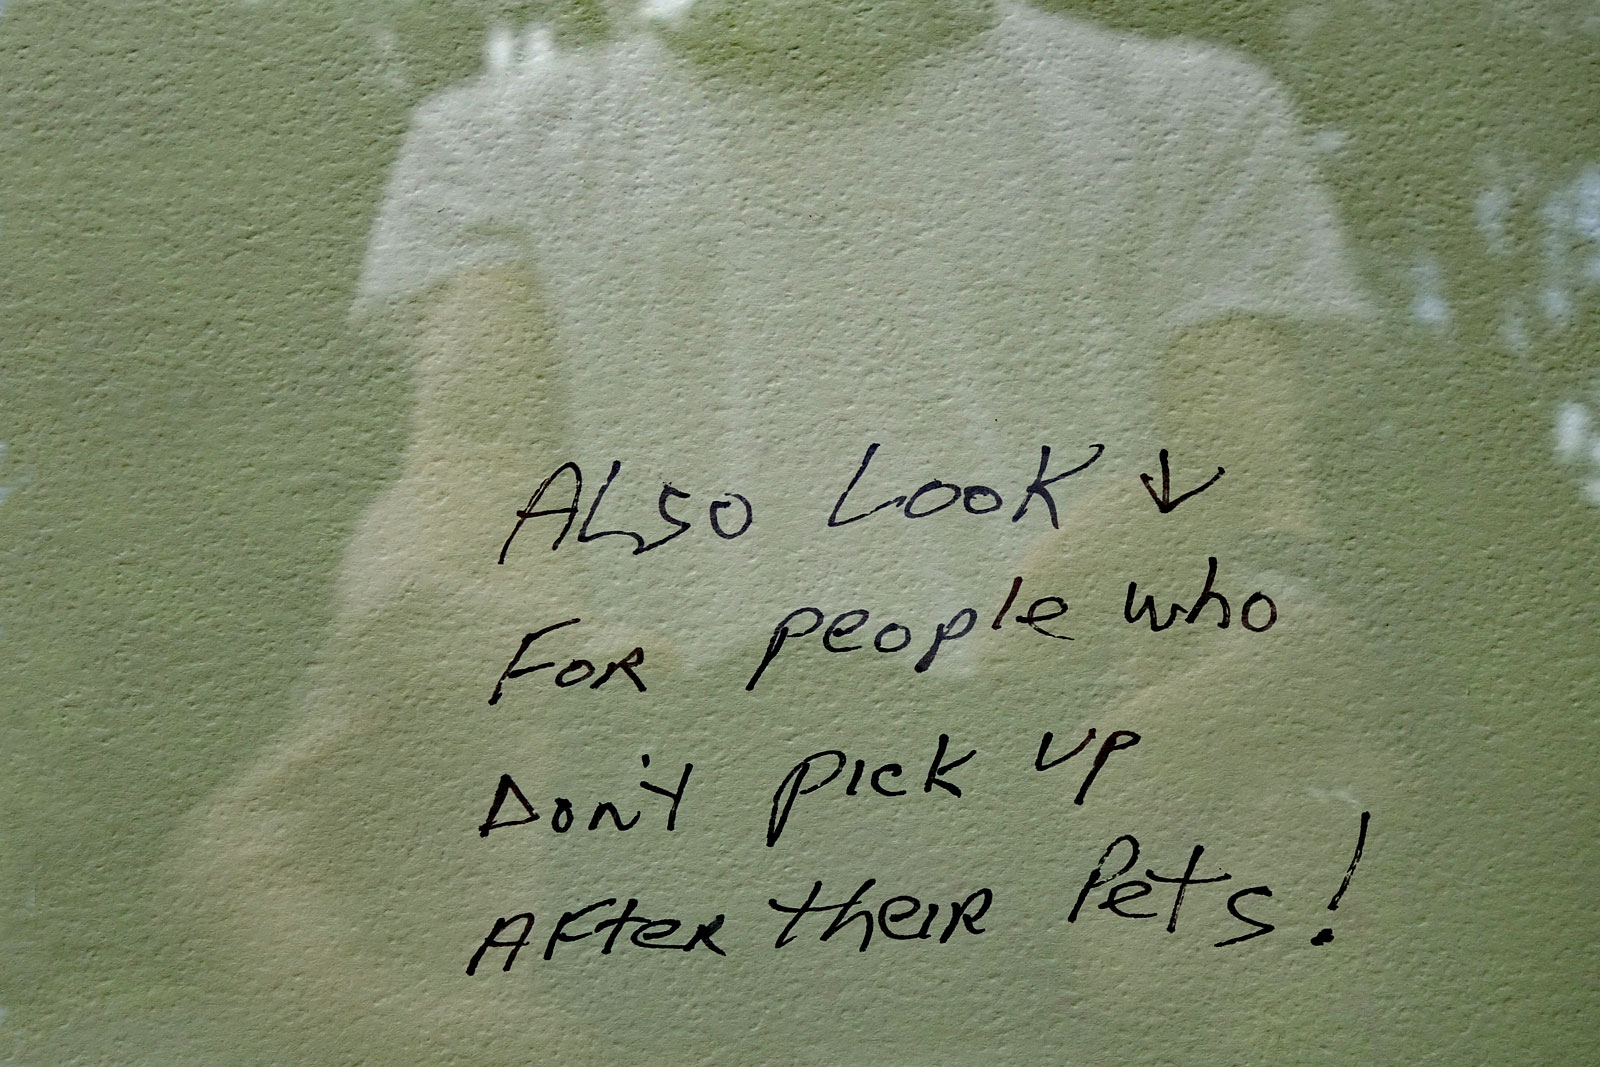 ALSO LOOK ↓
FOR people who
DON'T pick up
AFter their Pets!